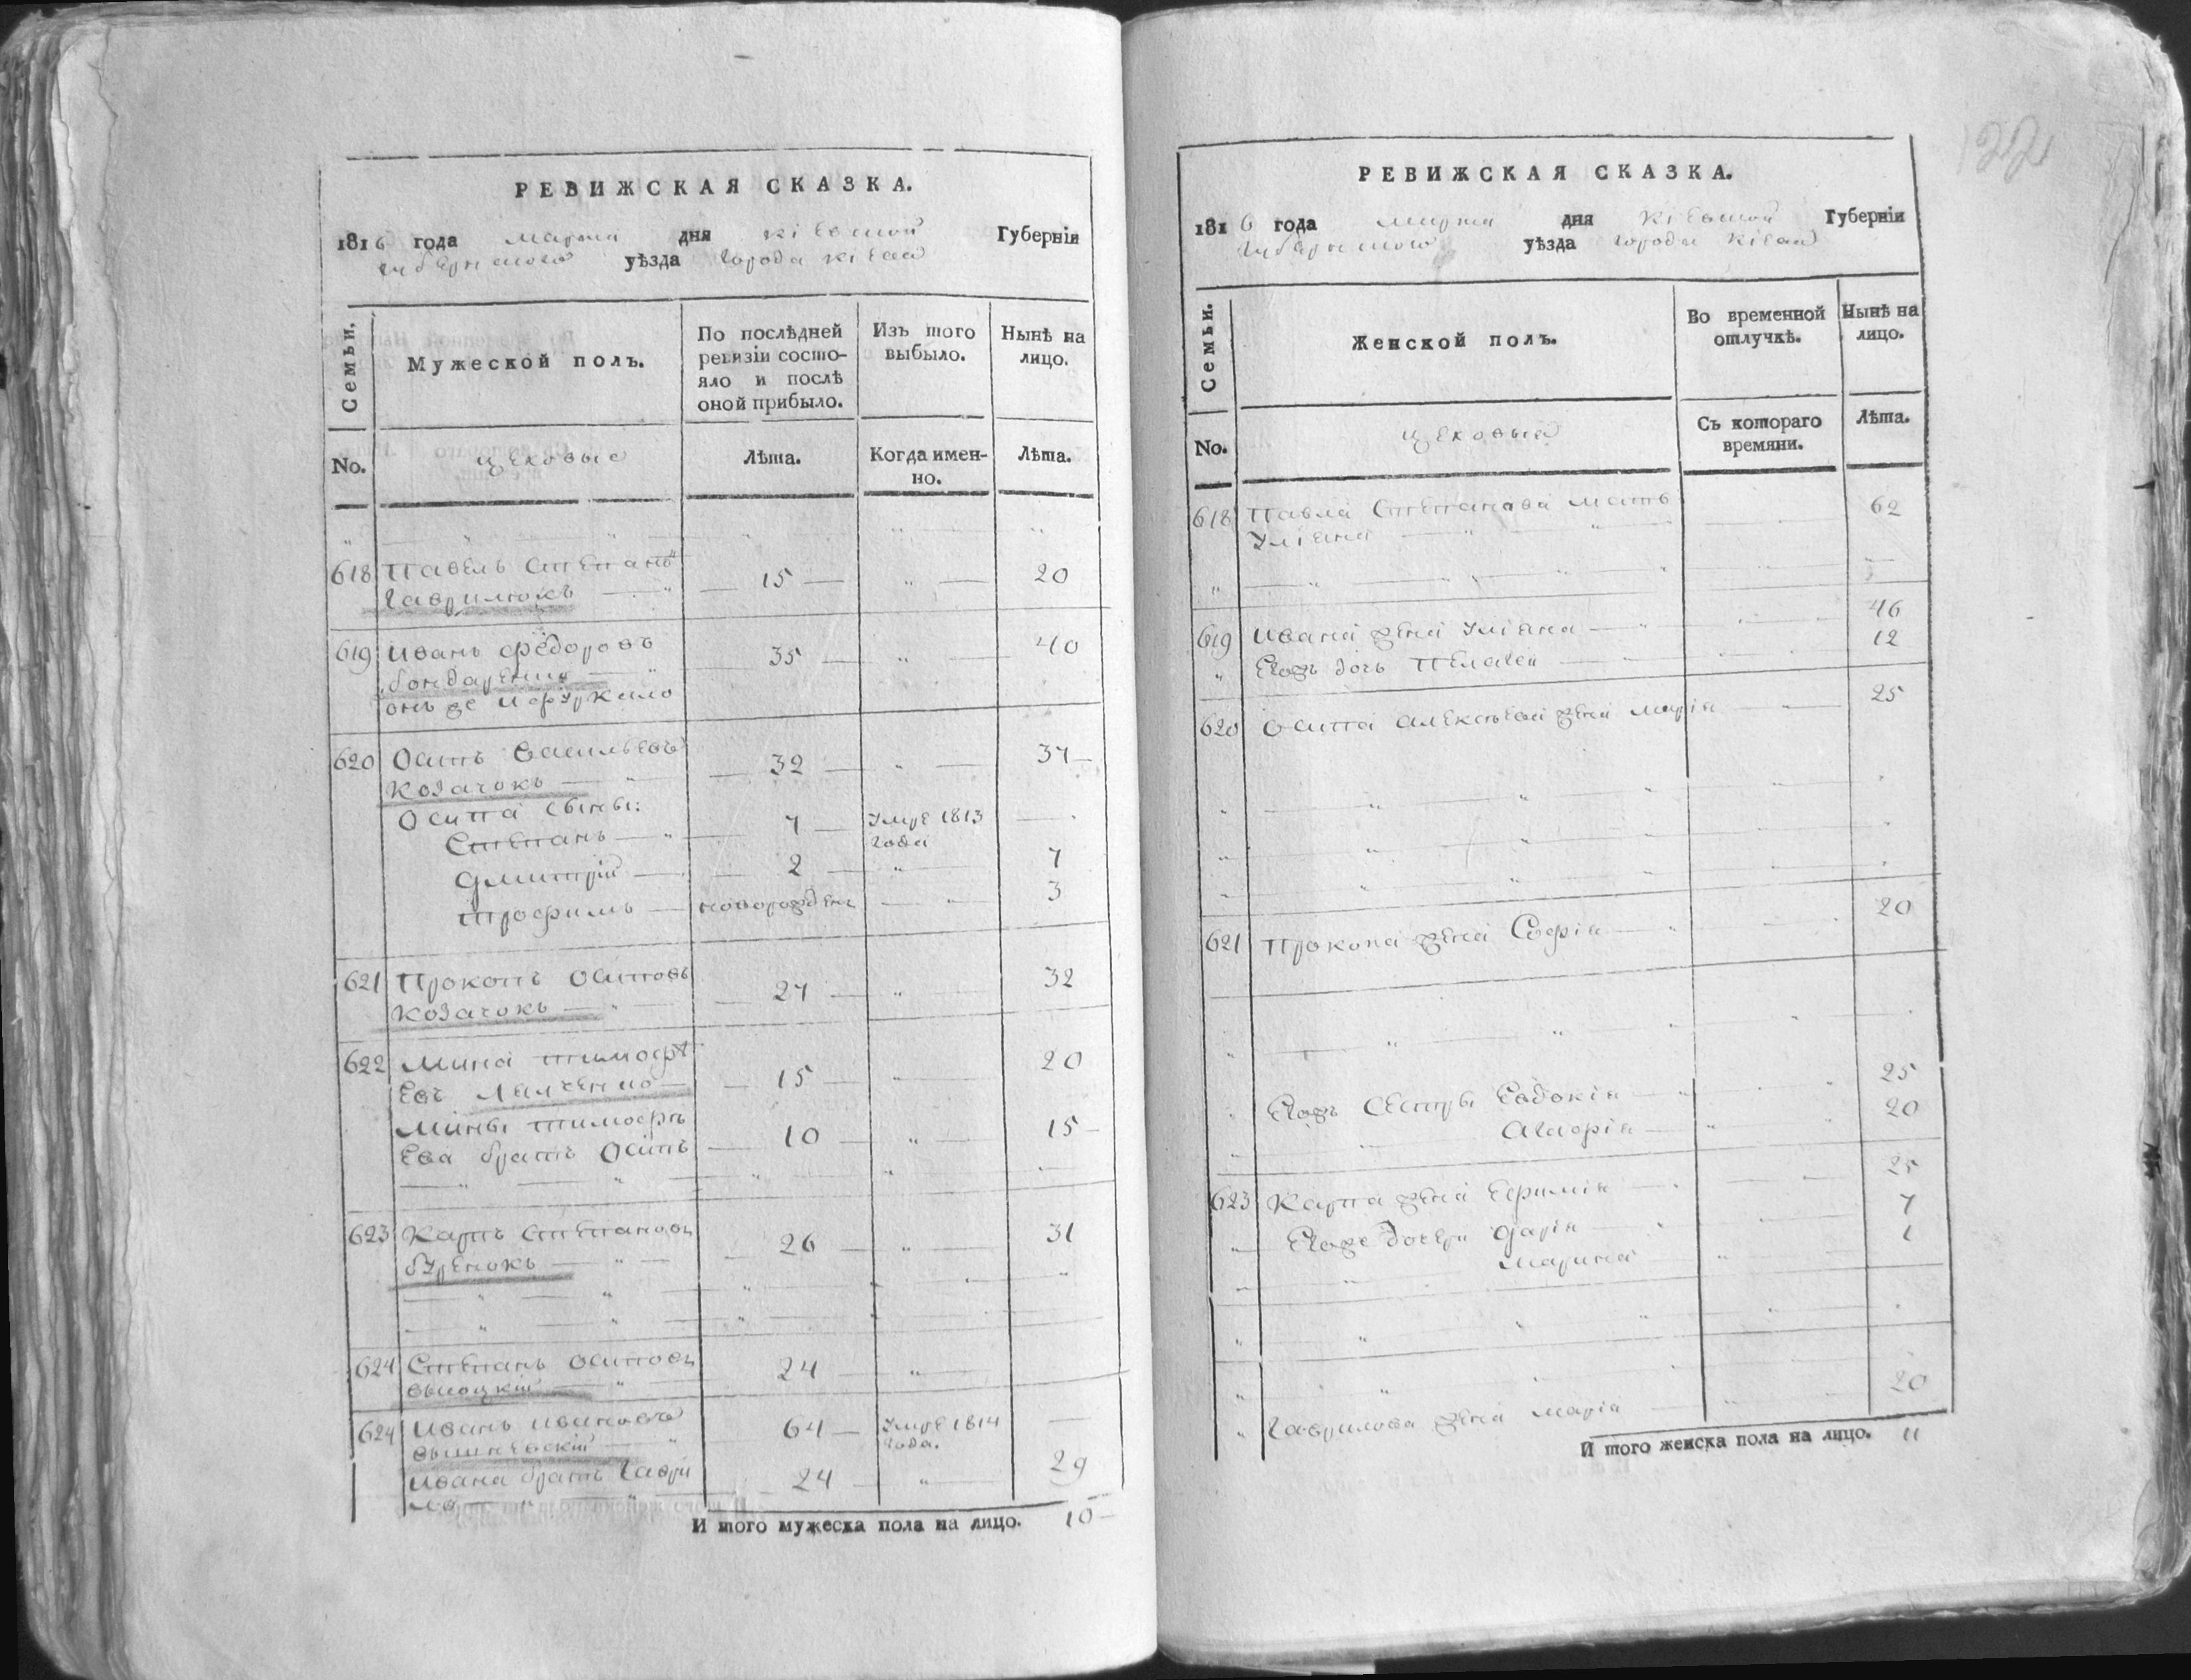 РЕВИЖСКАЯ СКАЗКА.
1816 года марта дня Кіевской Губерніи
Губернскаго уѣзда города Кіева
Семьи.
Мужеской полъ.
По послѣдней ревизіи состо-
яло и послѣ
оной прибыло.
Изъ того
выбыло.
Нынѣ на
лицо.
No.
цеховые
Лѣта.
Когда имен-
но.
Лѣта.
618 Павелъ Степановъ
Гаврилюкъ 15 20
619 Иванъ Федоровъ 35 40
Бондаренко
онъ же и Фуркало
620 Осипъ Васильевъ
Козачокъ 32 37
Осипа сыны:
Степанъ 7 умре 1813
года
Дмитрій 2 7
Трофимъ новорожденъ 3
621 Прокопъ Осиповъ
Козачокъ 27 32
622 Мина Тимофѣ
евъ 15 20
Мины Тимофѣ
ева братъ Осипъ 10 15
623 Карпъ Степановъ
Буренокъ 26 31
624 Степанъ Осиповъ
Высоцкій 24
624 Иванъ Ивановъ 64 умре 1814
Вышневскій года.
Ивана братъ Гаври
ло 24 29
И того мужеска пола на лицо. 10
122
РЕВИЖСКАЯ СКАЗКА.
1816 года марта дня Кіевской Губерніи
Губернскаго уѣзда города Кіева
Семьи.
Женской полъ.
Во временной
отлучкѣ.
Нынѣ на
лицо.
No.
цеховые
Съ котораго
времяни.
Лѣта.
618 Павла Степанова мать 62
Уліяна
619 Ивана жена Уліяна 46
Егожъ дочь Пелагея 12
620 Осипа Алексѣева жена Марія 25
621 Прокопа жена Софія 20
Егожъ сестры Евдокія 25
Агафія 20
623 Карпа жена Ефимія 25
Егоже дочери Дарія 7
Марина 1
Гаврилова жена Марія 20
И того женска пола на лицо. 11